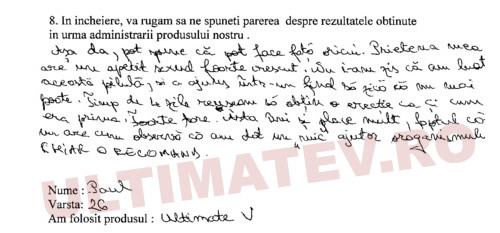 8. In incheiere, va rugam sa ne spuneti parerea despre rezultatele obtinute
in urma administrarii produsului nostru .
Așa da, pot spune că pot face față oricui. Prietena mea
are un apetit sexual foarte crescut. Nu i-am zis că am luat
această pilulă, și a ajuns într-un final să zică că nu mai
poate. Timp de 4 zile reușeam să obțin o erectie ca și cum
era prima. Foarte tare. Asta îmi și place mult, faptul că
nu are cum observa că am dat un "mic" ajutor organismului
CHIAR O RECOMAND.
Nume : Paul
Varsta: 26
Am folosit produsul : Ultimate V
ULTIMATEV.RO